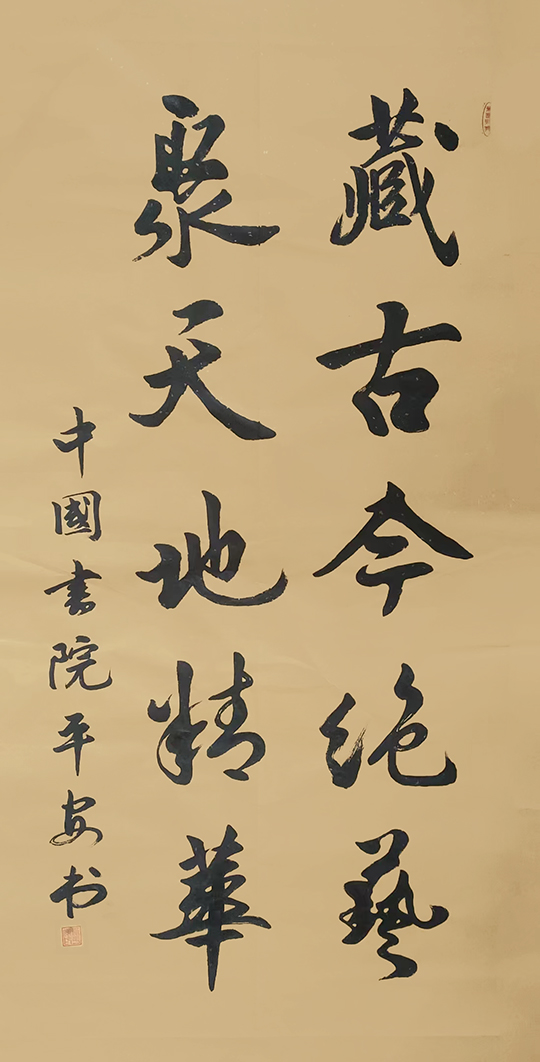 藏古今绝藝
聚天地精華
中國書院平安书